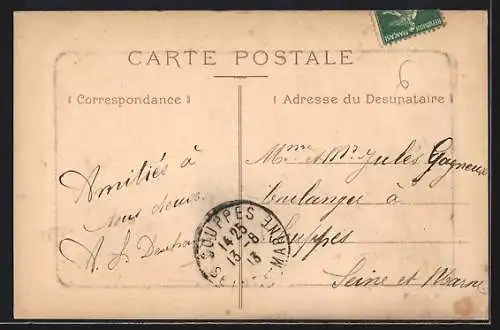 CARTE POSTALE
Correspondance
Adresse du Destinataire
6
Amitiés à
vous deux
Mme et Mr Jules Gagneux
boulanger à
Souppes
Seine et Marne
SOUPPES
14 25
13 - 8
13
SEINE-ET-MARNE